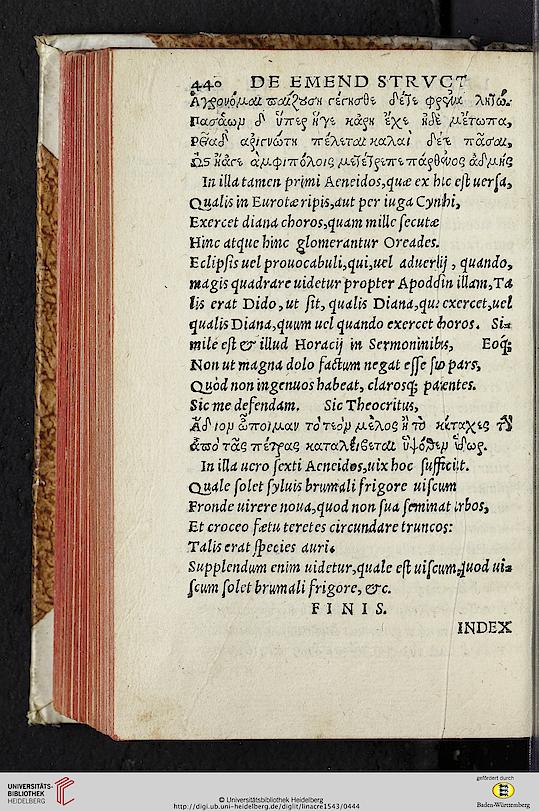 440 DE EMEND STRVCT
Ἀγρονόμαι παίζουσι γέγηθε δέτε φρένα λητώ.
Πασάωμ δ ὕπερ ἥγε κάρη ἔχε ἠδὲ μέτωπα,
Ρεῖαδ ἀριγνώτη πέλεται καλαὶ δέτε πᾶσαι,
Ὣς ἥδε ἀμφιπόλοις μετέπρεπε παρθένος ἀδμής
In illa tamen primi Aeneidos, quæ ex hic est uersa,
Qualis in Eurotæ ripis, aut per iuga Cynthi,
Exercet diana choros, quam mille secutæ
Hinc atque hinc glomerantur Oreades.
Eclipsis uel prouocabuli, qui, uel aduerbij, quando,
magis quadrare uidetur propter Apodosin illam, Ta
lis erat Dido, ut sit, qualis Diana, quæ exercet, uel
qualis Diana, quum uel quando exercet choros. Si=
mile est & illud Horacij in Sermonibus, Eoq;
Non ut magna dolo factum negat esse suo pars,
Quòd non ingenuos habeat, clarosq; parentes.
Sic me defendam. Sic Theocritus,
Ἅδιον ὦ ποιμαν τὸ τεὸμ μέλος ἢ τὸ καταχες τῆ
ἀπὸ τᾶς πέτρας καταλείβεται ὑψόθεμ ὕδωρ.
In illa uero sexti Aeneidos, uix hoc sufficit.
Quale solet syluis brumali frigore uiscum
Fronde uirere noua, quod non sua seminat arbos,
Et croceo fætu teretes circundare truncos:
Talis erat species auri.
Supplendum enim uidetur, quale est uiscum, quod ui=
scum solet brumali frigore, &c.
FINIS.
INDEX
UNIVERSITÄTS-
BIBLIOTHEK
HEIDELBERG
© Universitätsbibliothek Heidelberg
http://digi.ub.uni-heidelberg.de/diglit/linacre1543/0444
gefördert durch
Baden-Württemberg